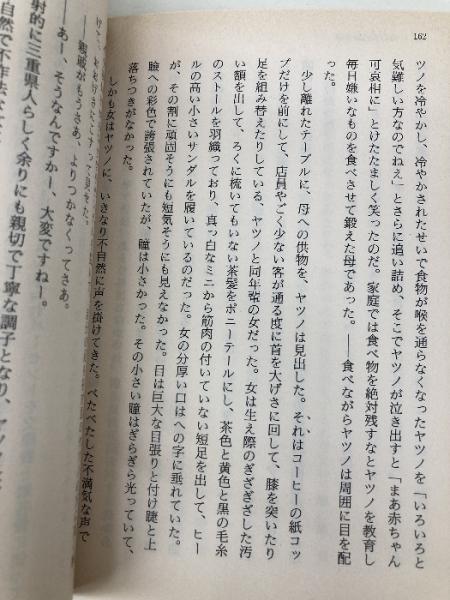 162
ツノを冷やかし、冷やかされたせいで食物が喉を通らなくなったヤツノを「いろいろと
気難しい方なのでねえ」とさらに追い詰め、そこでヤツノが泣き出すと「まあ赤ちゃん
可哀相に」とけたたましく笑ったのだ。家庭では食べ物を絶対残すなとヤツノを教育し
毎日嫌いなものを食べさせて鍛えた母であった。――食べながらヤツノは周囲に目を配
った。
少し離れたテーブルに、母への供物を、ヤツノは見出した。それはコーヒーの紙コッ
プだけを前にして、店員やごく少ない客が通る度に首を大げさに回して、膝を突いたり
足を組み替えたりしている、ヤツノと同年輩の女だった。女は生え際のぎざぎざした汚
い額を出して、ろくに梳いてもいない茶髪をポニーテールにし、茶色と黄色と黒の毛糸
のストールを羽織っており、真っ白なミニから筋肉の付いていない短足を出して、ヒー
ルの高い小さいサンダルを履いているのだった。女の分厚い口はへの字に垂れていた。
が、その割に頑固そうにも短気そうにも見えなかった。目は巨大な目張りと付け睫と上
瞼への彩色で誇張されていたが、瞳は小さかった。その小さい瞳はぎらぎら光っていて、
落ちつきがなかった。
しかも女はヤツノに、いきなり不自然に声を掛けてきた。べたべたした不満気な声で
――親戚がもうさあ、よりつかなくってさあ。
――あー、そうなんですかー、大変ですねー。
射的に三重県人らしく余りにも親切で丁寧な調子となり、